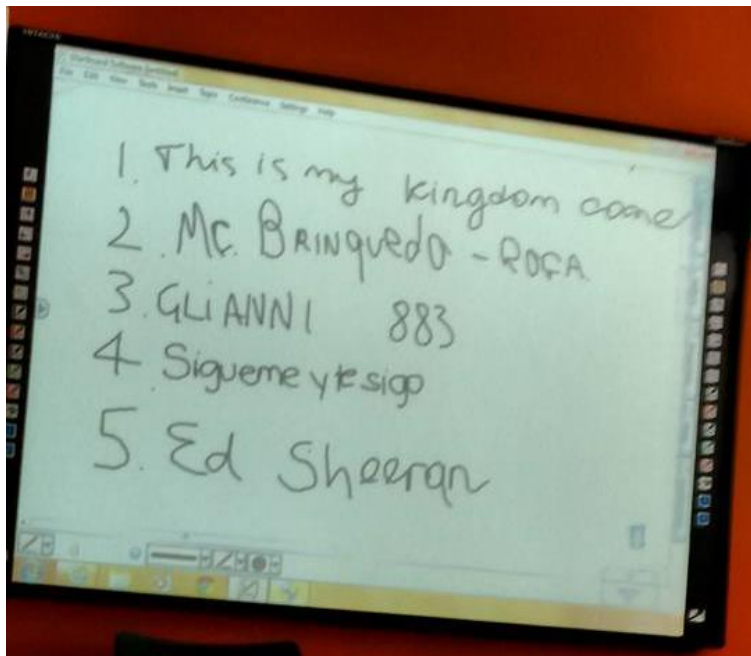 HITACHI
StarBoard Software [untitled]
File Edit View Tools Insert Topic Conference Settings Help
1. This is my kingdom come
2. Mc. BRINQUEdO - ROÇA
3. GLI ANNI 883
4 Sigueme y te sigo
5. Ed Sheeran